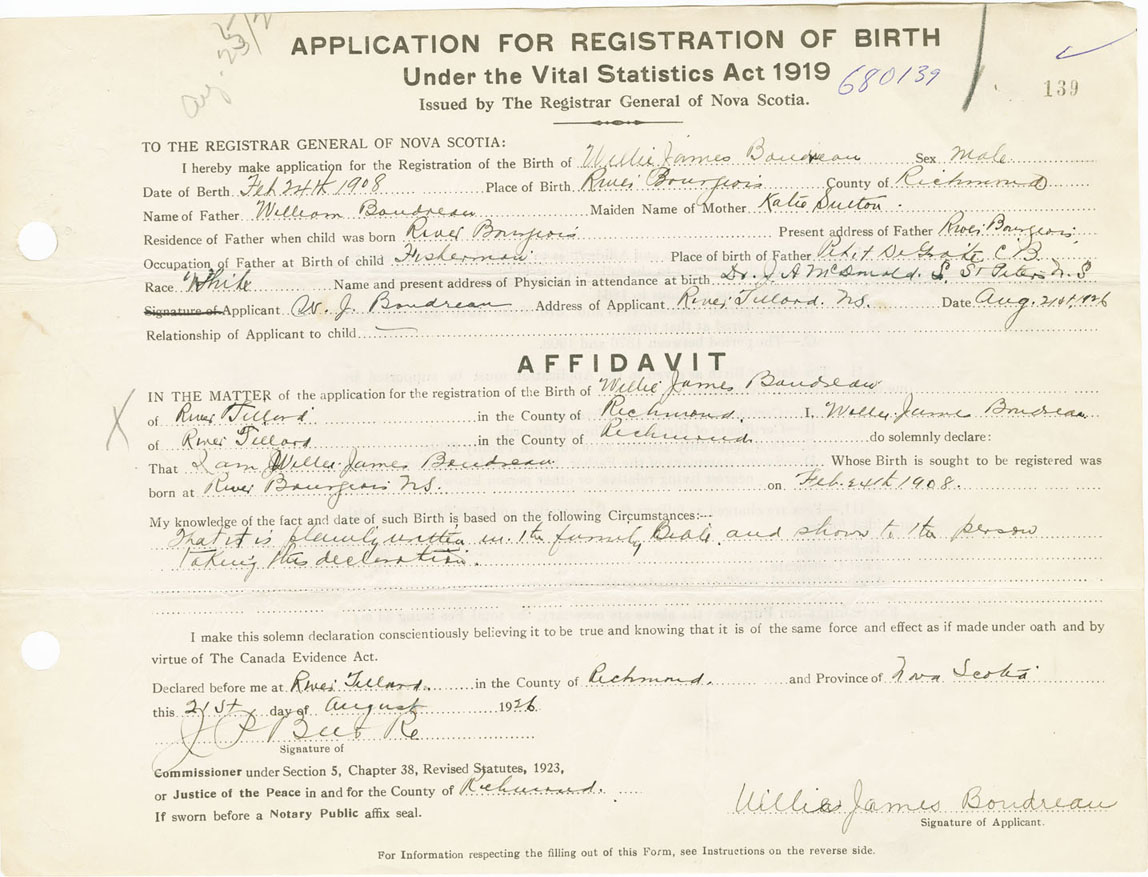 Aug. 23/26
APPLICATION FOR REGISTRATION OF BIRTH
Under the Vital Statistics Act 1919
680139
139
Issued by The Registrar General of Nova Scotia.
TO THE REGISTRAR GENERAL OF NOVA SCOTIA:
I hereby make application for the Registration of the Birth of Willie James Boudreau Sex Male
Date of Berth Feb 24th 1908 Place of Birth River Bourgeois County of Richmond
Name of Father William Boudreau Maiden Name of Mother Katie Sutton.
Residence of Father when child was born River Bourgeois Present address of Father River Bourgeois
Occupation of Father at Birth of child Fisherman Place of birth of Father Petit DeGrat C B
Race White Name and present address of Physician in attendance at birth Dr. J A McDonald. St Peters N S
Signature of Applicant W. J. Boudreau Address of Applicant River Tillard. N.S. Date Aug. 21st. 1926
Relationship of Applicant to child
AFFIDAVIT
IN THE MATTER of the application for the registration of the Birth of Willie James Boudreau
of River Tillard in the County of Richmond I, Willie James Boudreau
of River Tillard in the County of Richmond do solemnly declare:
That I am Willie James Boudreau Whose Birth is sought to be registered was
born at River Bourgeois N.S. on Feb. 24th 1908.
My knowledge of the fact and date of such Birth is based on the following Circumstances:--
That it is plainly written in the family Bible and shown to the person
taking this declaration.
I make this solemn declaration conscientiously believing it to be true and knowing that it is of the same force and effect as if made under oath and by
virtue of The Canada Evidence Act.
Declared before me at River Tillard. in the County of Richmond. and Province of Nova Scotia
this 21st day of August 1926
J P Burke
Signature of
Commissioner under Section 5, Chapter 38, Revised Statutes, 1923,
or Justice of the Peace in and for the County of Richmond.
If sworn before a Notary Public affix seal.
Willie James Boudreau
Signature of Applicant.
For Information respecting the filling out of this Form, see Instructions on the reverse side.